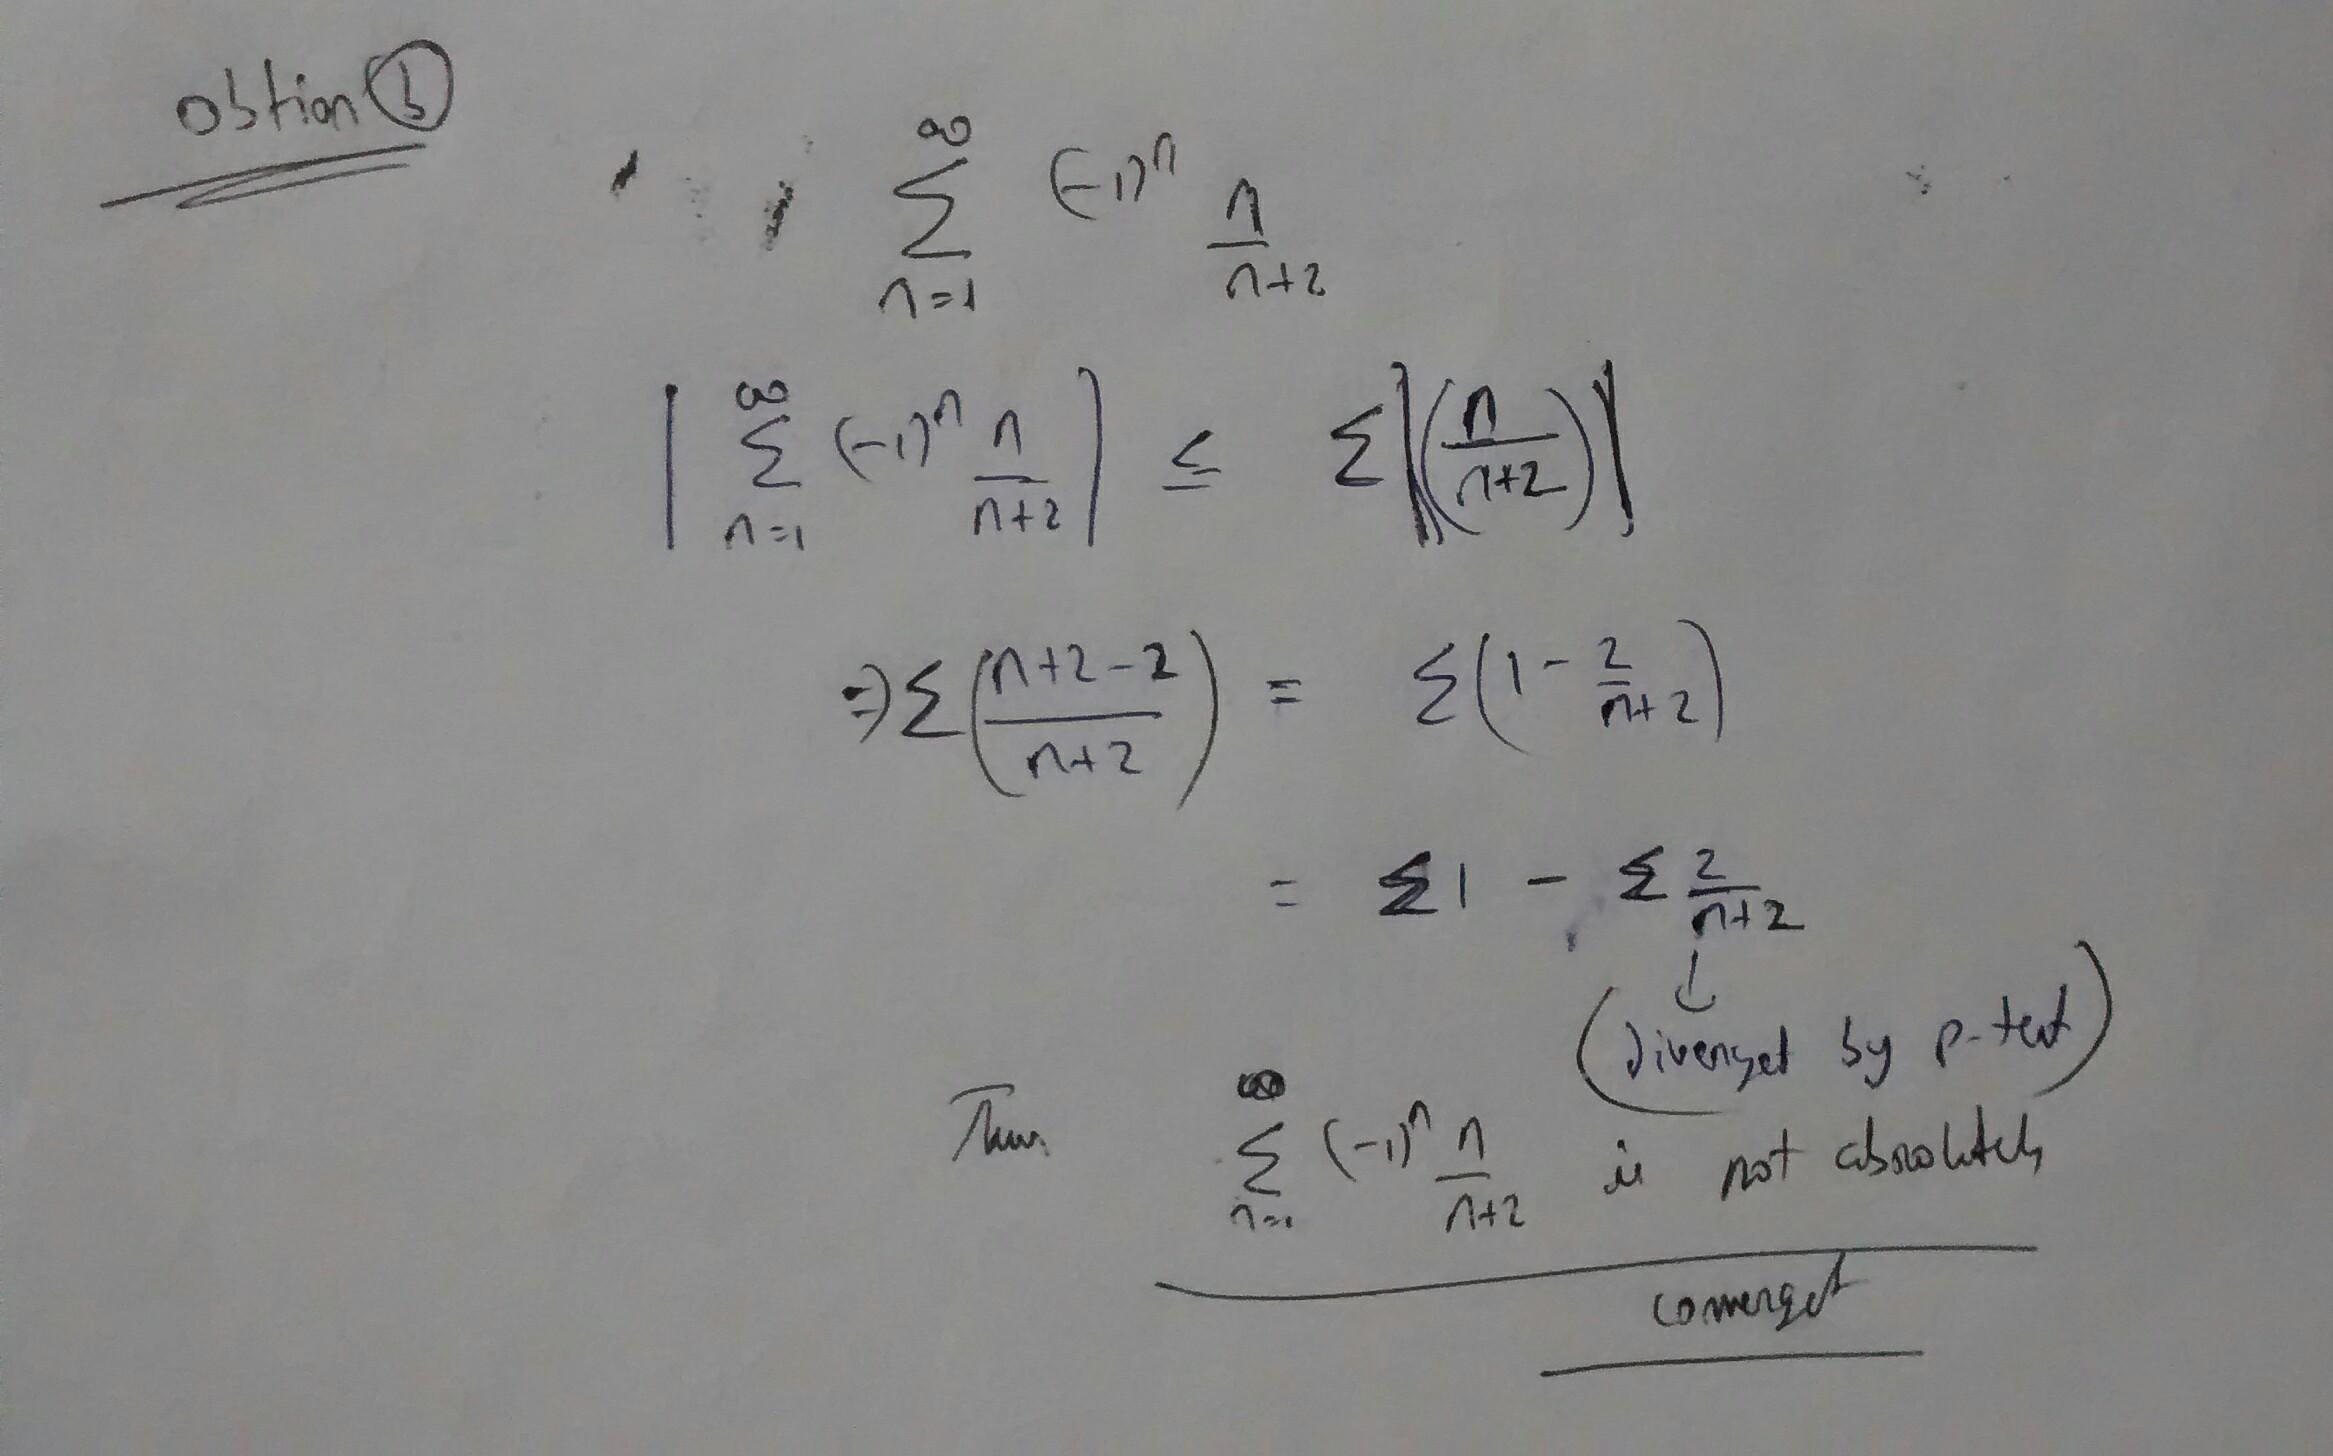 Obtion (b)
∞∑n=1 (-1)^n n/(n+2)
|∞∑n=1 (-1)^n n/(n+2)| ≤ ∑|(n/(n+2))|
⇒ ∑((n+2-2)/(n+2)) = ∑(1 - 2/(n+2))
= ∑1 - ∑ 2/(n+2)
↓
(diverget by p-test)
Thus ∞∑n=1 (-1)^n n/(n+2) is not absolutely
converget